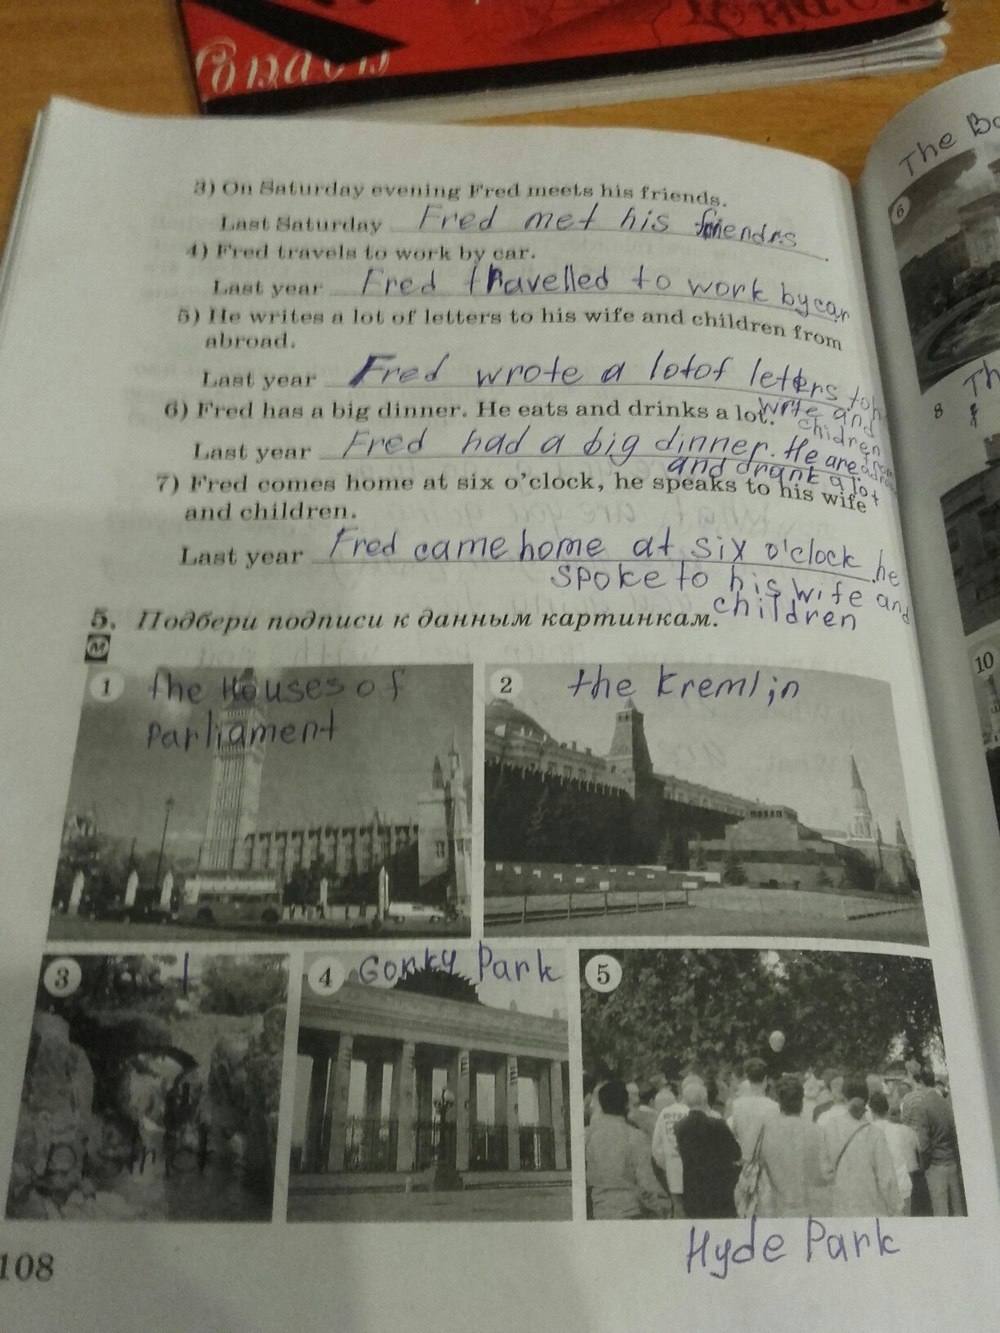 London
3) On Saturday evening Fred meets his friends.
Last Saturday Fred met his friendrs
4) Fred travels to work by car.
Last year Fred travelled to work by car
5) He writes a lot of letters to his wife and children from
abroad.
Last year Fred wrote a lot of letters to h
write and
chidren
6) Fred has a big dinner. He eats and drinks a lot.
Last year Fred had a big dinner. He are
and drank a lot
7) Fred comes home at six o'clock, he speaks to his wife
and children.
Last year Fred came home at six o'clock he
spoke to his wife and
children
5. Подбери подписи к данным картинкам.
1 the Houses of
Parliament
2 the Kremlin
3
District
4 Gorky Park
5
Hyde Park
108
The Bo
6
Th
8
10